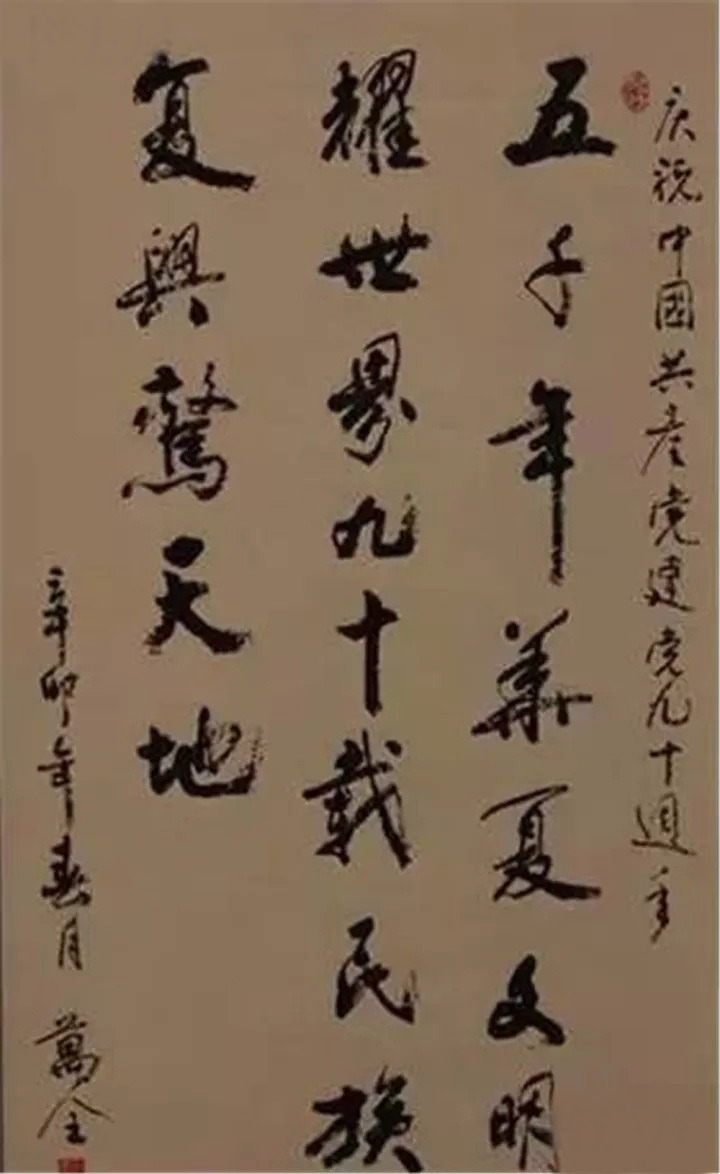 庆祝中國共产党建党九十週年
五千年華夏文明
耀世界九十载民族
复興驚天地
辛卯年春月
萬全